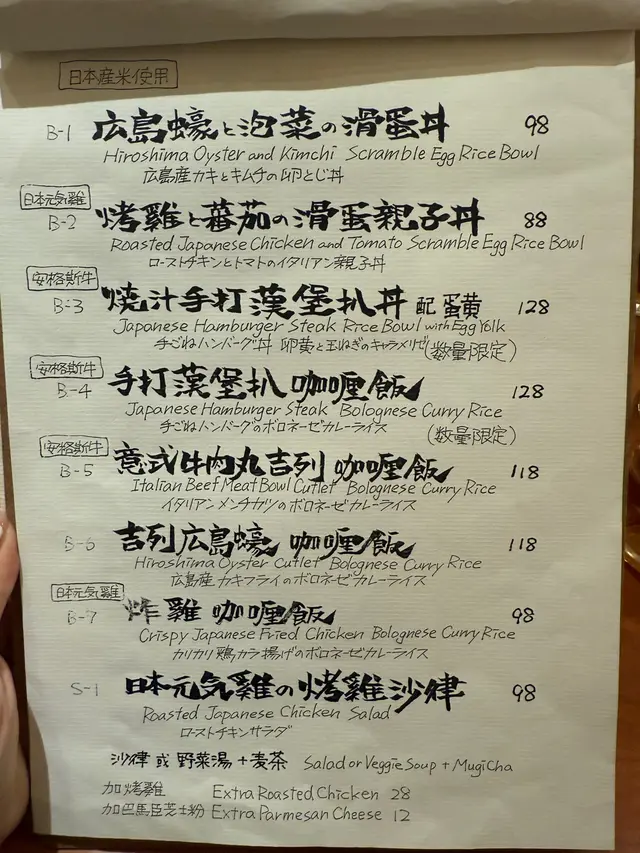 日本産米使用
B-1 広島蠔と泡菜の滑蛋丼 98
Hiroshima Oyster and Kimchi Scramble Egg Rice Bowl
広島産カキとキムチの卵とじ丼
日本元気雞
B-2 烤雞と蕃茄の滑蛋親子丼 88
Roasted Japanese Chicken and Tomato Scramble Egg Rice Bowl
ローストチキンとトマトのイタリアン親子丼
安格斯牛
B-3 燒汁手打漢堡扒丼 配蛋黄 128
Japanese Hamburger Steak Rice Bowl with Egg Yolk
手ごねハンバーグ丼 卵黄と玉ねぎのキャラメリゼ (数量限定)
安格斯牛
B-4 手打漢堡扒咖喱飯 128
Japanese Hamburger Steak Bolognese Curry Rice
手ごねハンバーグのボロネーゼカレーライス (数量限定)
安格斯牛
B-5 意式牛肉丸吉列咖喱飯 118
Italian Beef Meat Bowl Cutlet Bolognese Curry Rice
イタリアンメンチカツのボロネーゼカレーライス
B-6 吉列広島蠔咖喱飯 118
Hiroshima Oyster Cutlet Bolognese Curry Rice
広島産カキフライのボロネーゼカレーライス
日本元気雞
B-7 炸雞咖喱飯 98
Crispy Japanese Fried Chicken Bolognese Curry Rice
カリカリ鶏カラ揚げのボロネーゼカレーライス
S-1 日本元気雞の烤雞沙律 98
Roasted Japanese Chicken Salad
ローストチキンサラダ
沙律 或 野菜湯 + 麦茶 Salad or Veggie Soup + Mugi Cha
加烤雞 Extra Roasted Chicken 28
加巴馬臣芝士粉 Extra Parmesan Cheese 12